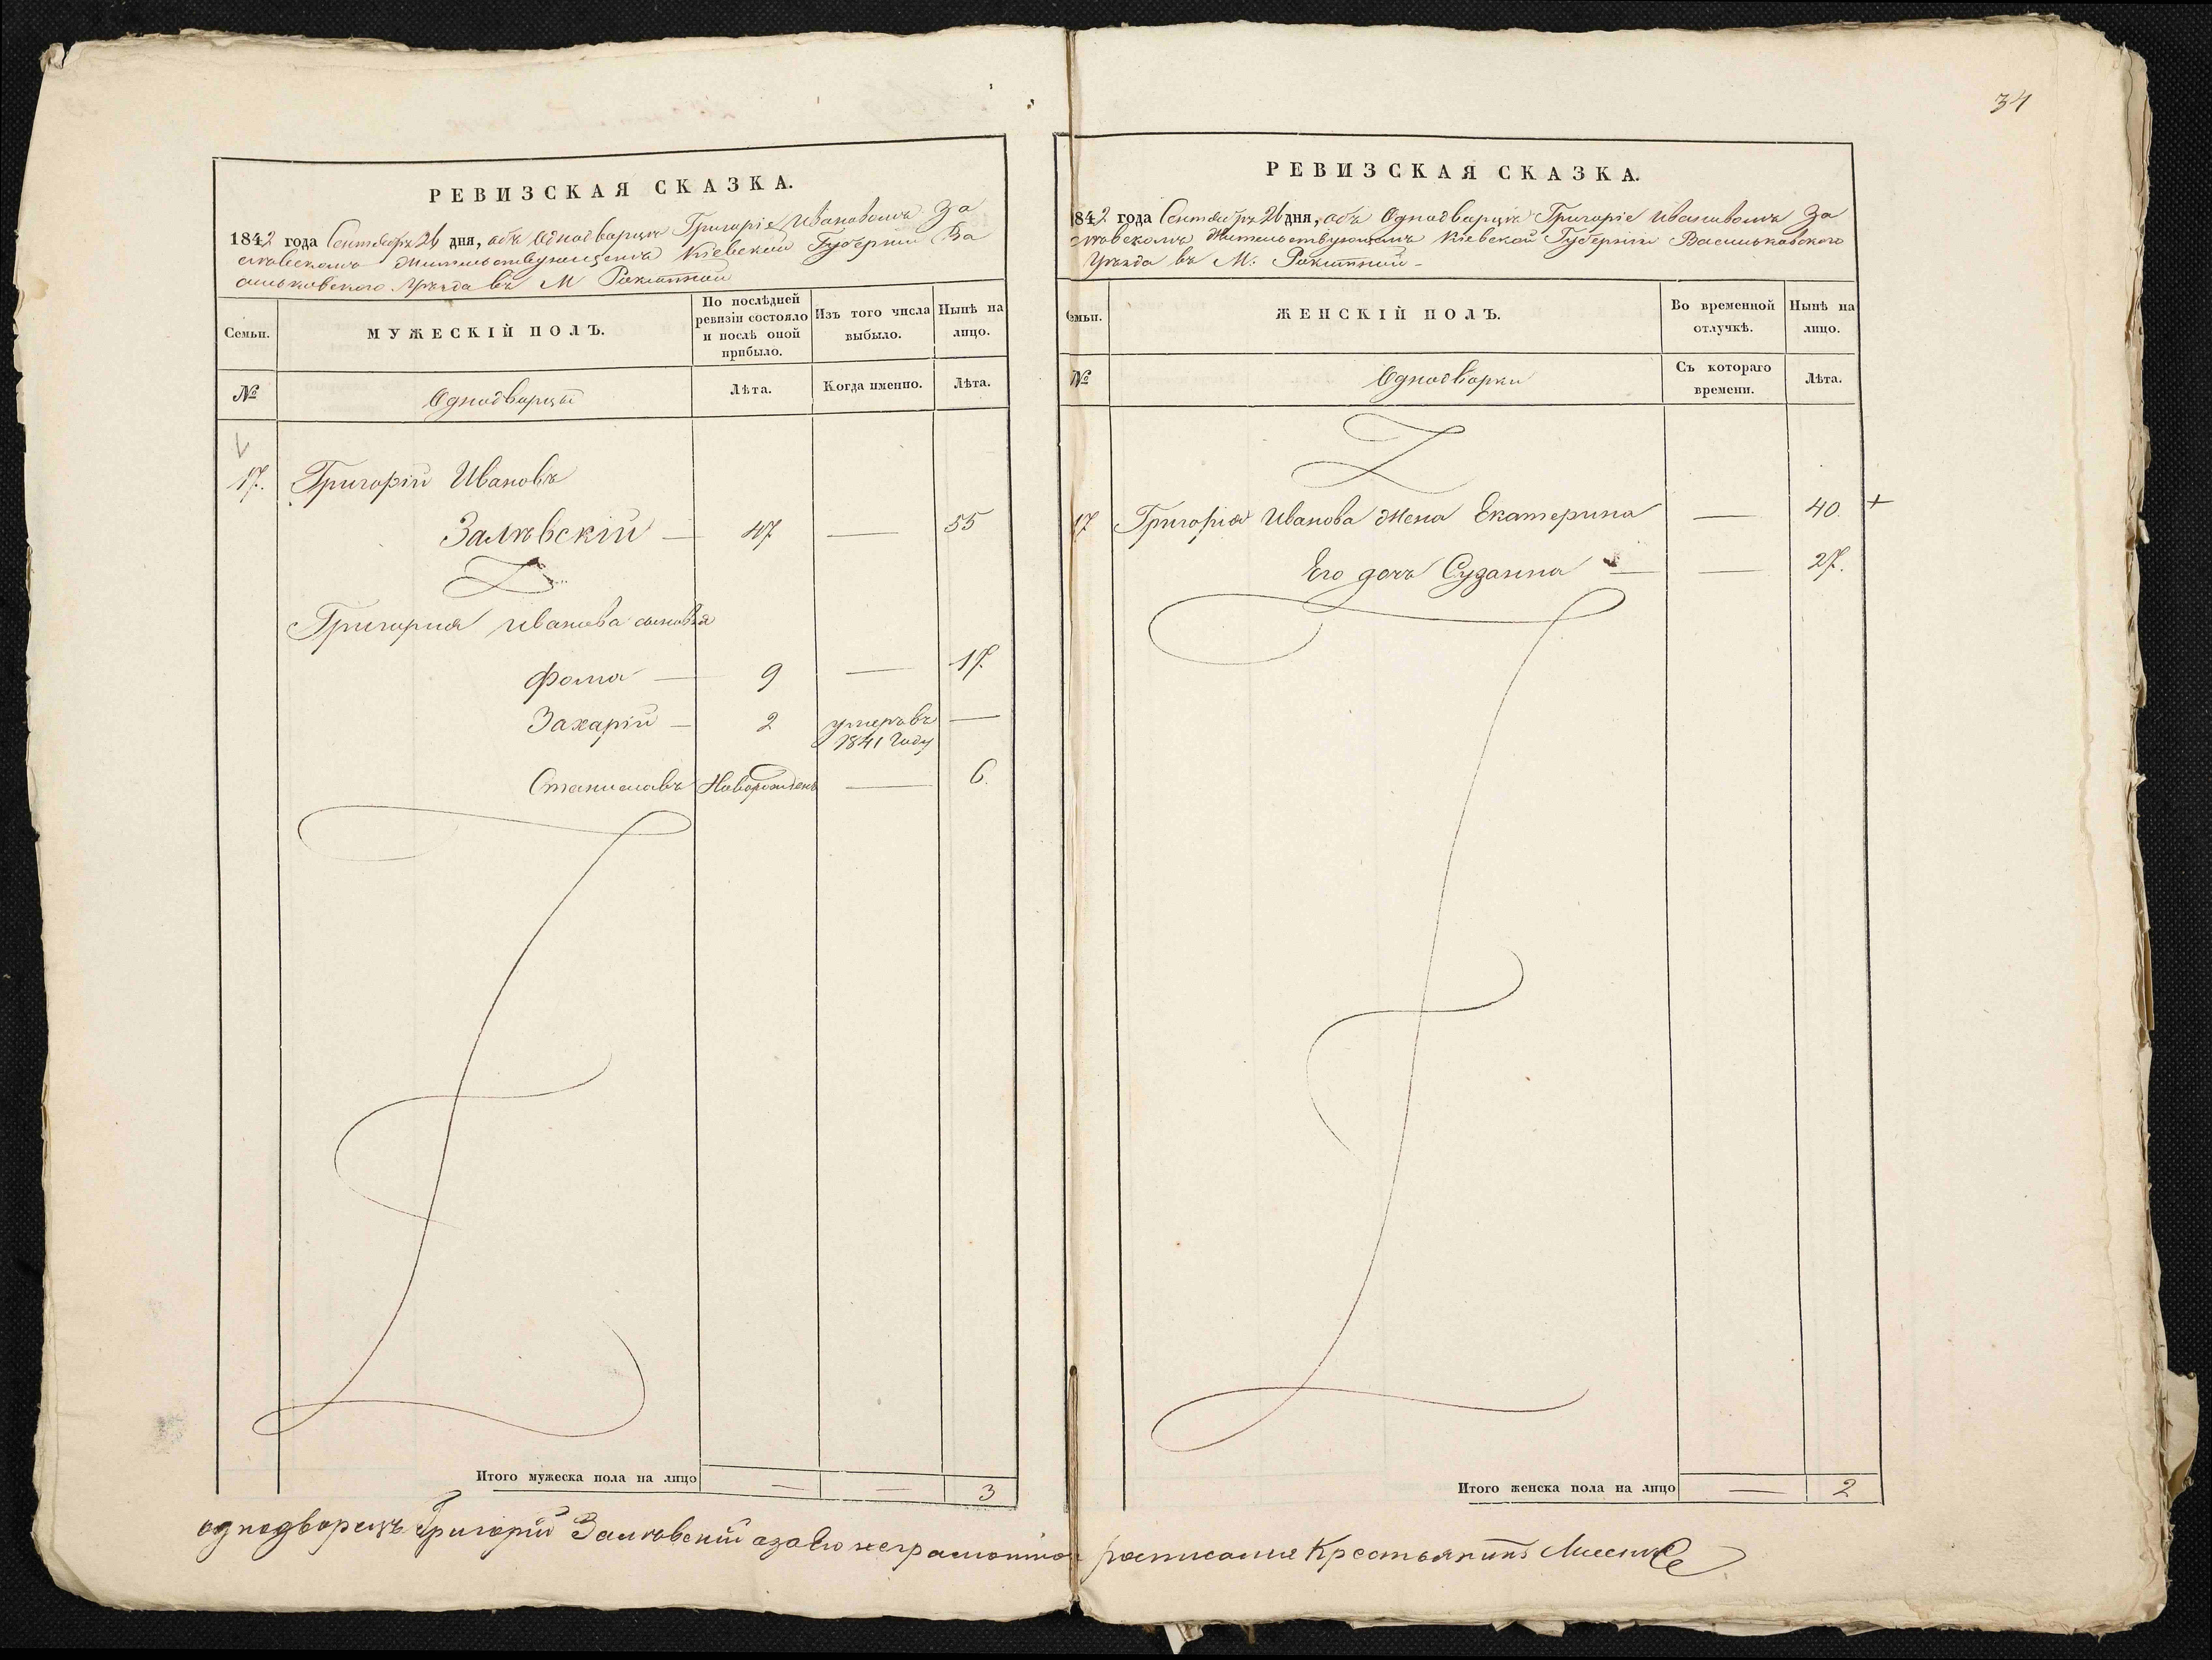 34
РЕВИЗСКАЯ СКАЗКА.
1842 года Сентября 26 дня, объ Однодворцѣ Григоріе Ивановомъ За
лѣвскомъ Жительствующемъ Кіевской Губерніи Ва
сильковского Уѣзда въ М Рокитной
Семьи.
МУЖЕСКІЙ ПОЛЪ.
По послѣдней ревизіи состояло и послѣ оной прибыло.
Изъ того числа выбыло.
Нынѣ на лицо.
№
Однодворцы
Лѣта.
Когда именно.
Лѣта.
17. Григорій Ивановъ
Залѣвскій — 47 — 55
Григория Иванова сыновья
Фома — 9 — 17.
Захарій — 2 умеръ въ 1841 Году —
Станиславъ Новорожденъ — 6.
Итого мужеска пола на лицо — — 3
РЕВИЗСКАЯ СКАЗКА.
1842 года Сентября 26 дня, объ Однодворцѣ Григоріе Ивановомъ За
лѣвскомъ Жительствующемъ Кіевской Губерніи Васильковского
Уѣзда въ М. Рокитной
Семьи.
ЖЕНСКІЙ ПОЛЪ.
Во временной отлучкѣ.
Нынѣ на лицо.
№
Однодворки
Съ котораго времени.
Лѣта.
17 Григорія Иванова Жена Екатерина — 40. +
Его дочь Сузанна — — 27.
Итого женска пола на лицо — 2
однодворецъ Григорій Залѣвский азаего неграмотно росписалсе Крестьянинъ